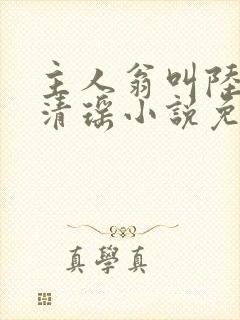 主人翁叫陸
清瑶小説免
真學真